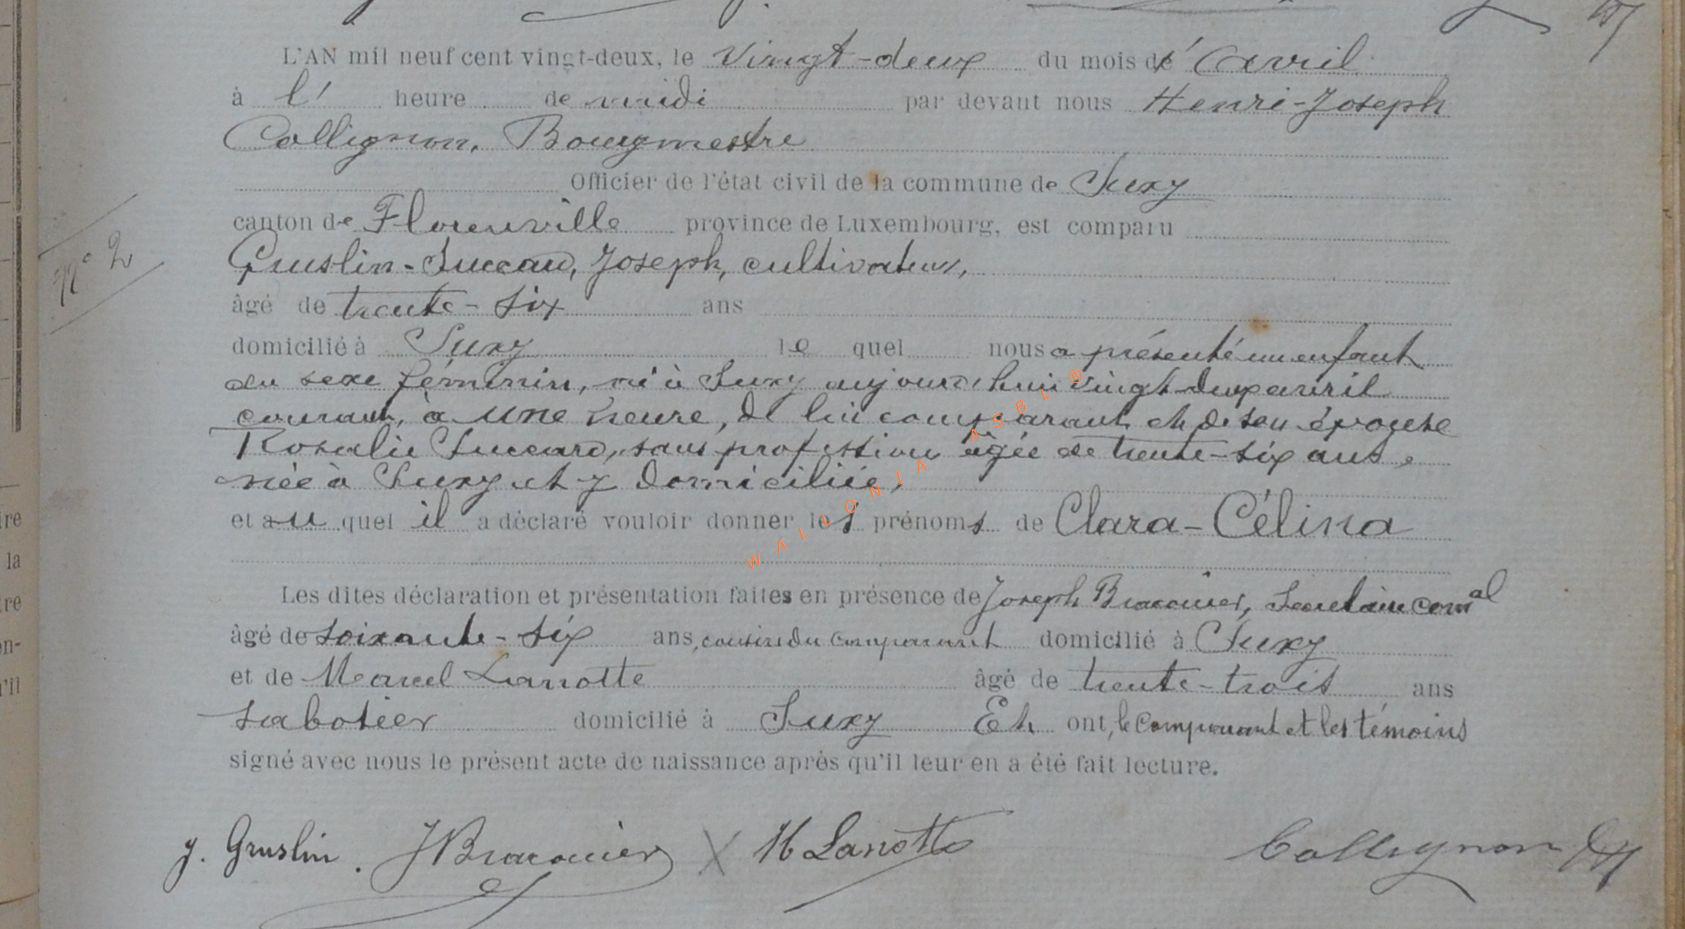 L'AN mil neuf cent vingt-deux, le vingt-deux du mois d' avril
à l' heure de midi par devant nous Henri-Joseph
Collignon, Bourgmestre
Officier de l'état civil de la commune de Suxy
canton de Florenville province de Luxembourg, est comparu
N° 2
Gruslin-Succard, Joseph, cultivateur,
âgé de trente-six ans
domicilié à Suxy le quel nous a présenté un enfant
du sexe féminin, né à Suxy aujourd'hui vingt deux avril
courant, à une heure, de lui comparant et de son épouse
Rosalie Succard, sans profession âgée de trente-six ans,
née à Suxy et y domiciliée,
et au quel il a déclaré vouloir donner les prénoms de Clara-Célina
Les dites déclaration et présentation faites en présence de Joseph Braconier, Secrétaire comal
âgé de soixante-six ans, cousin du comparant domicilié à Suxy
et de Marcel Lanotte âgé de trente-trois ans
sabotier domicilié à Suxy Et ont, le comparant et les témoins
signé avec nous le présent acte de naissance après qu'il leur en a été fait lecture.
J. Gruslin. J Braconier M Lanotte Collignon HJ
WALLONIA ASBL
ire
la
tre
en-
u'il